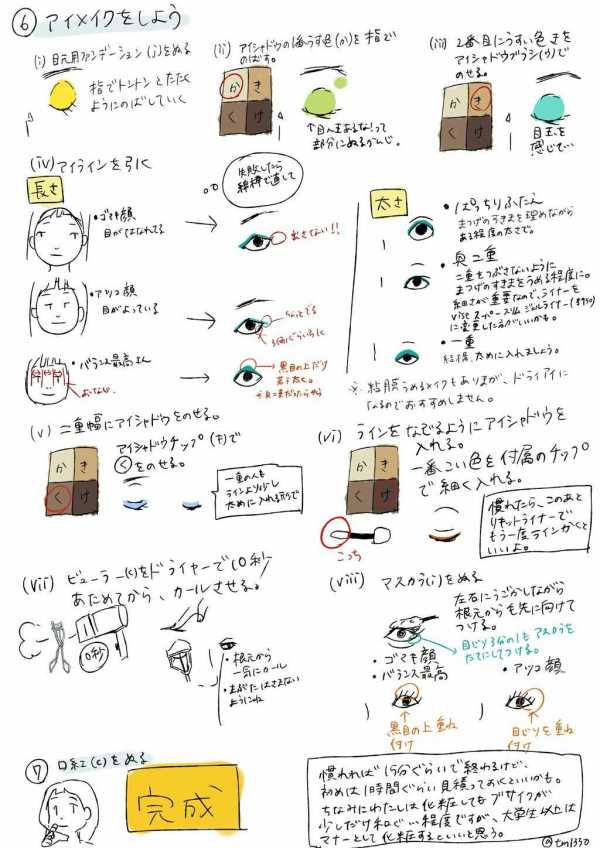 ⑥ アイメイクをしよう
(i) 目元用ファンデーション(j)をぬる
指でトントンとたたく
ようにのばしていく
(ii) アイシャドウの1番うすい色(か)を指で
のばす。
か き
く け
↑目玉あるな!って
部分にぬるかんじ。
(iii) 2番目にうすい色きを
アイシャドウブラシ(ウ)で
のせる。
か き
く け
目玉を
感じて…
(iv) アイラインを引く
失敗したら
綿棒で直して
長さ
・ゴマキ顔
目がはなれてる
出さない!!
・アツコ顔
目がよっている
・バランス最高さん
黒目の上だけ
若干太く。
太さ
・ぱっちりふたえ
まつげのすきまを埋めながら
ある程度の太さで。
・奥二重
二重をつぶさないように
まつげのすきまをうめる程度に。
細さが重要なので、ライナーを
に変更した方がいいかも。
・一重
結構太めに入れましょう。
※ 粘膜うめるメイクもありますが、ドライアイに
なるのでおすすめしません。
(v) 二重幅にアイシャドウをのせる。
アイシャドウチップ(キ)で
くをのせる。
か き
く け
一重の人も
ラインより少し
太めに入れる形で
(vi) ラインをなでるようにアイシャドウを
入れる。
一番こい色を付属のチップ
で細く入れる。
か き
く け
こっち
慣れたら、このあと
リキッドライナーで
もう一度ラインかくと
いいよ。
(vii) ビューラー(K)をドライヤーで10秒
あたためてから、カールさせる。
10秒
・根元から
一気にカール
・まぶたはさまない
ようにね
(viii) マスカラ(i)をぬる
左右にうごかしながら
根元から毛先に向けて
つける。
目じり3分の1もマスカラを
たてにしてつける。
・ゴマキ顔
・バランス最高
・アツコ顔
黒目の上重ね
付け
目じりを重ね
付け
⑦ 口紅(c)をぬる
完成
慣れれば15分ぐらいで終わるけど、
初めは1時間ぐらい見積っておくといいかも。
ちなみにわたしは化粧してもブサイクが
少しだけ和らぐ…程度ですが、大学生以上は
マナーとして化粧するといいと思う。
@tm1330